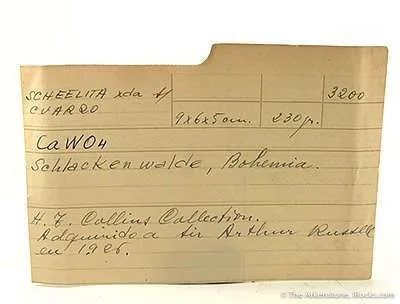 SCHEELITA xda s/
CUARZO
9x6x5cm.
230gr.
3200
CaWO4
Schlackenwalde, Bohemia.
H. F. Collins Collection.
Adquirido a Sir Arthur Russell
en 1926.
© The Arkenstone, iRocks.com